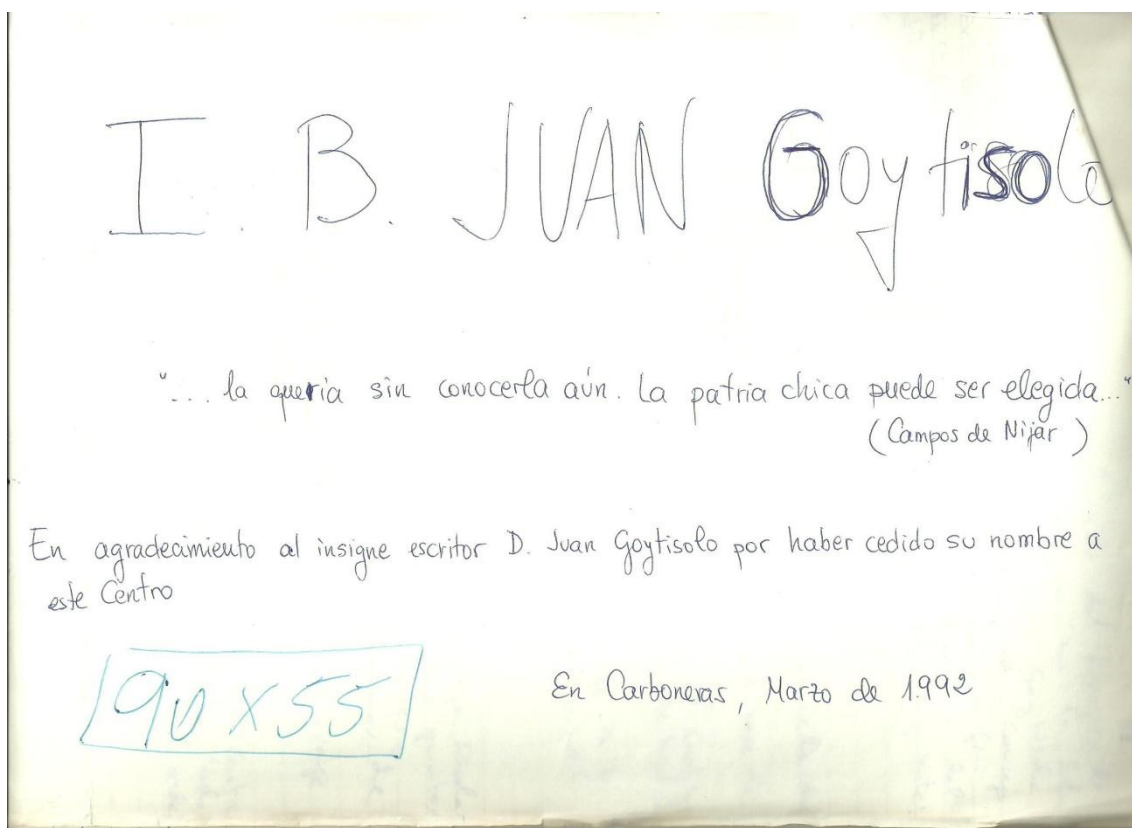 I. B. JUAN Goytisolo
"... la quería sin conocerla aún. La patria chica puede ser elegida..."
(Campos de Nijar)
En agradecimiento al insigne escritor D. Juan Goytisolo por haber cedido su nombre a
este Centro
90 x 55
En Carboneras, Marzo de 1.992